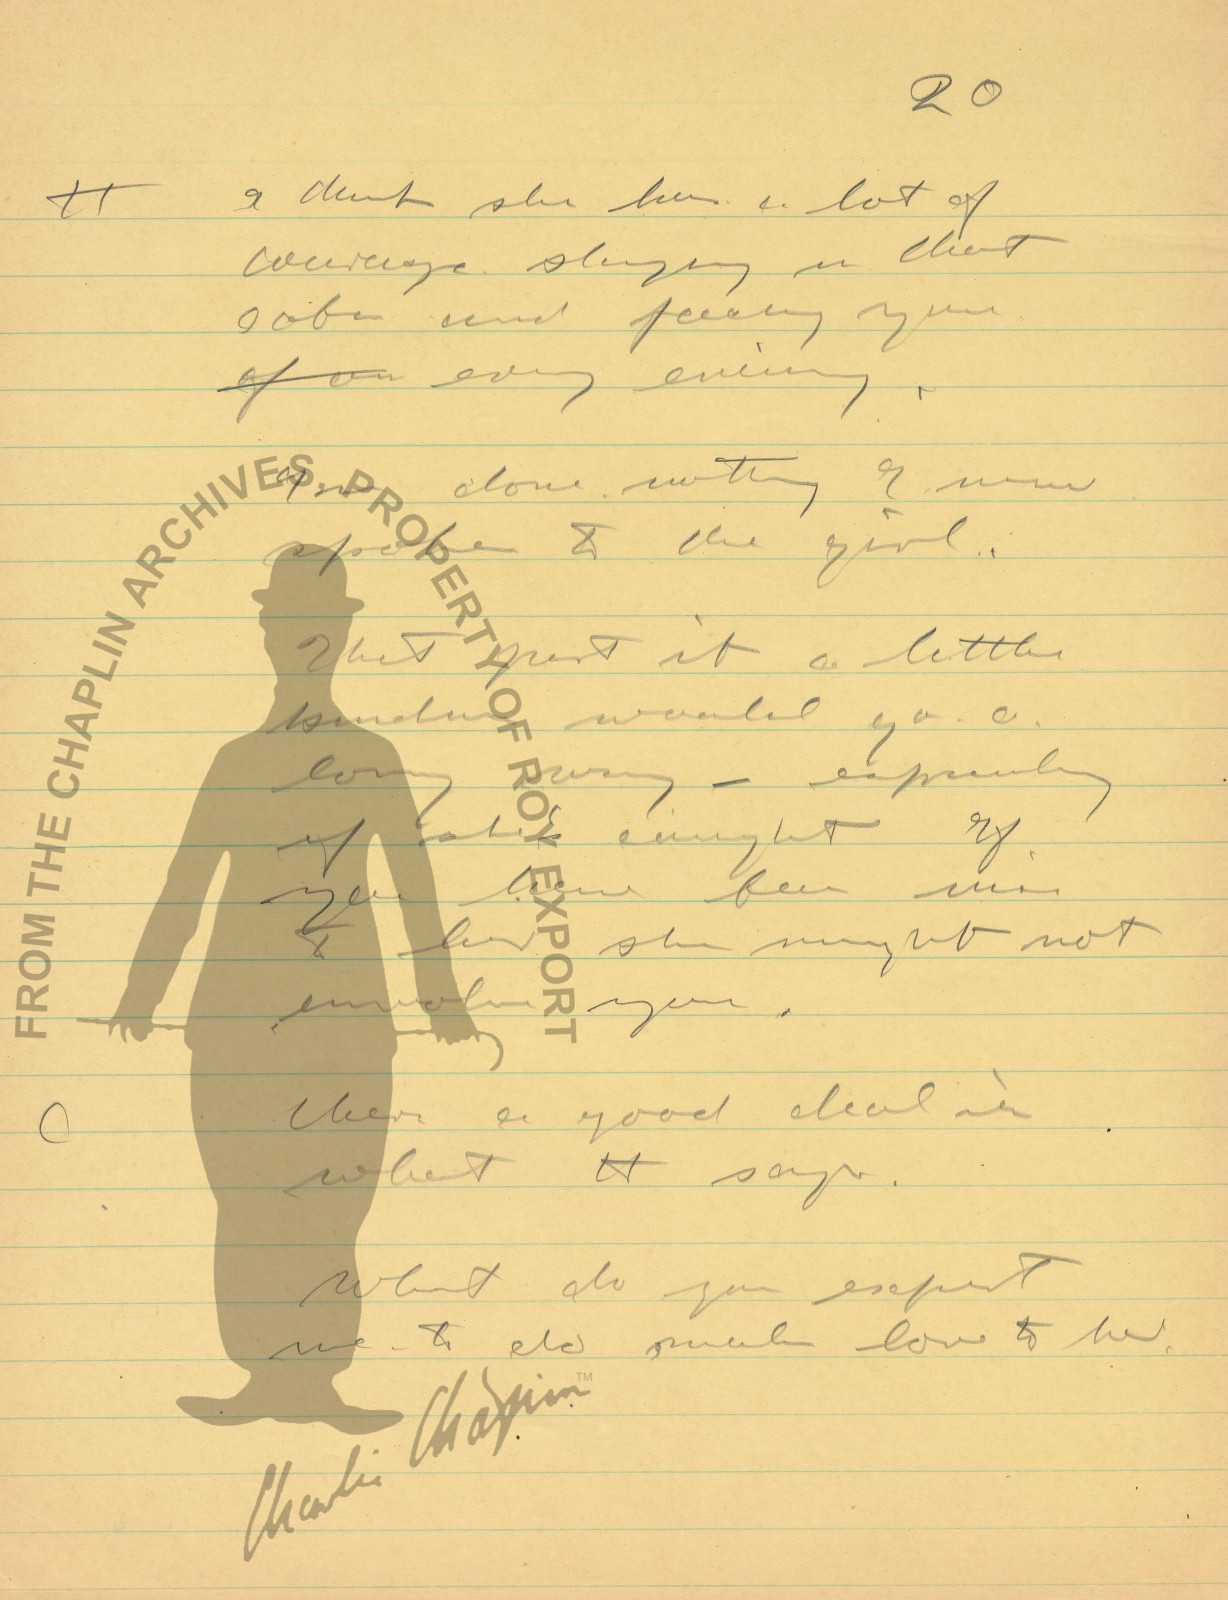 20
H I think she has a lot of
courage staying in that
sober and facing you
of on every evening.
done nothing I never
spoken to the girl.
That just it a little
kindness would go a
long way - especially
if she's caught If
you have been nice
to her she might not
envolve you.
C there a good deal in
what H says.
What do you expect
me to do make love to her.
FROM THE CHAPLIN ARCHIVES. PROPERTY OF ROY EXPORT
Charlie Chaplin TM